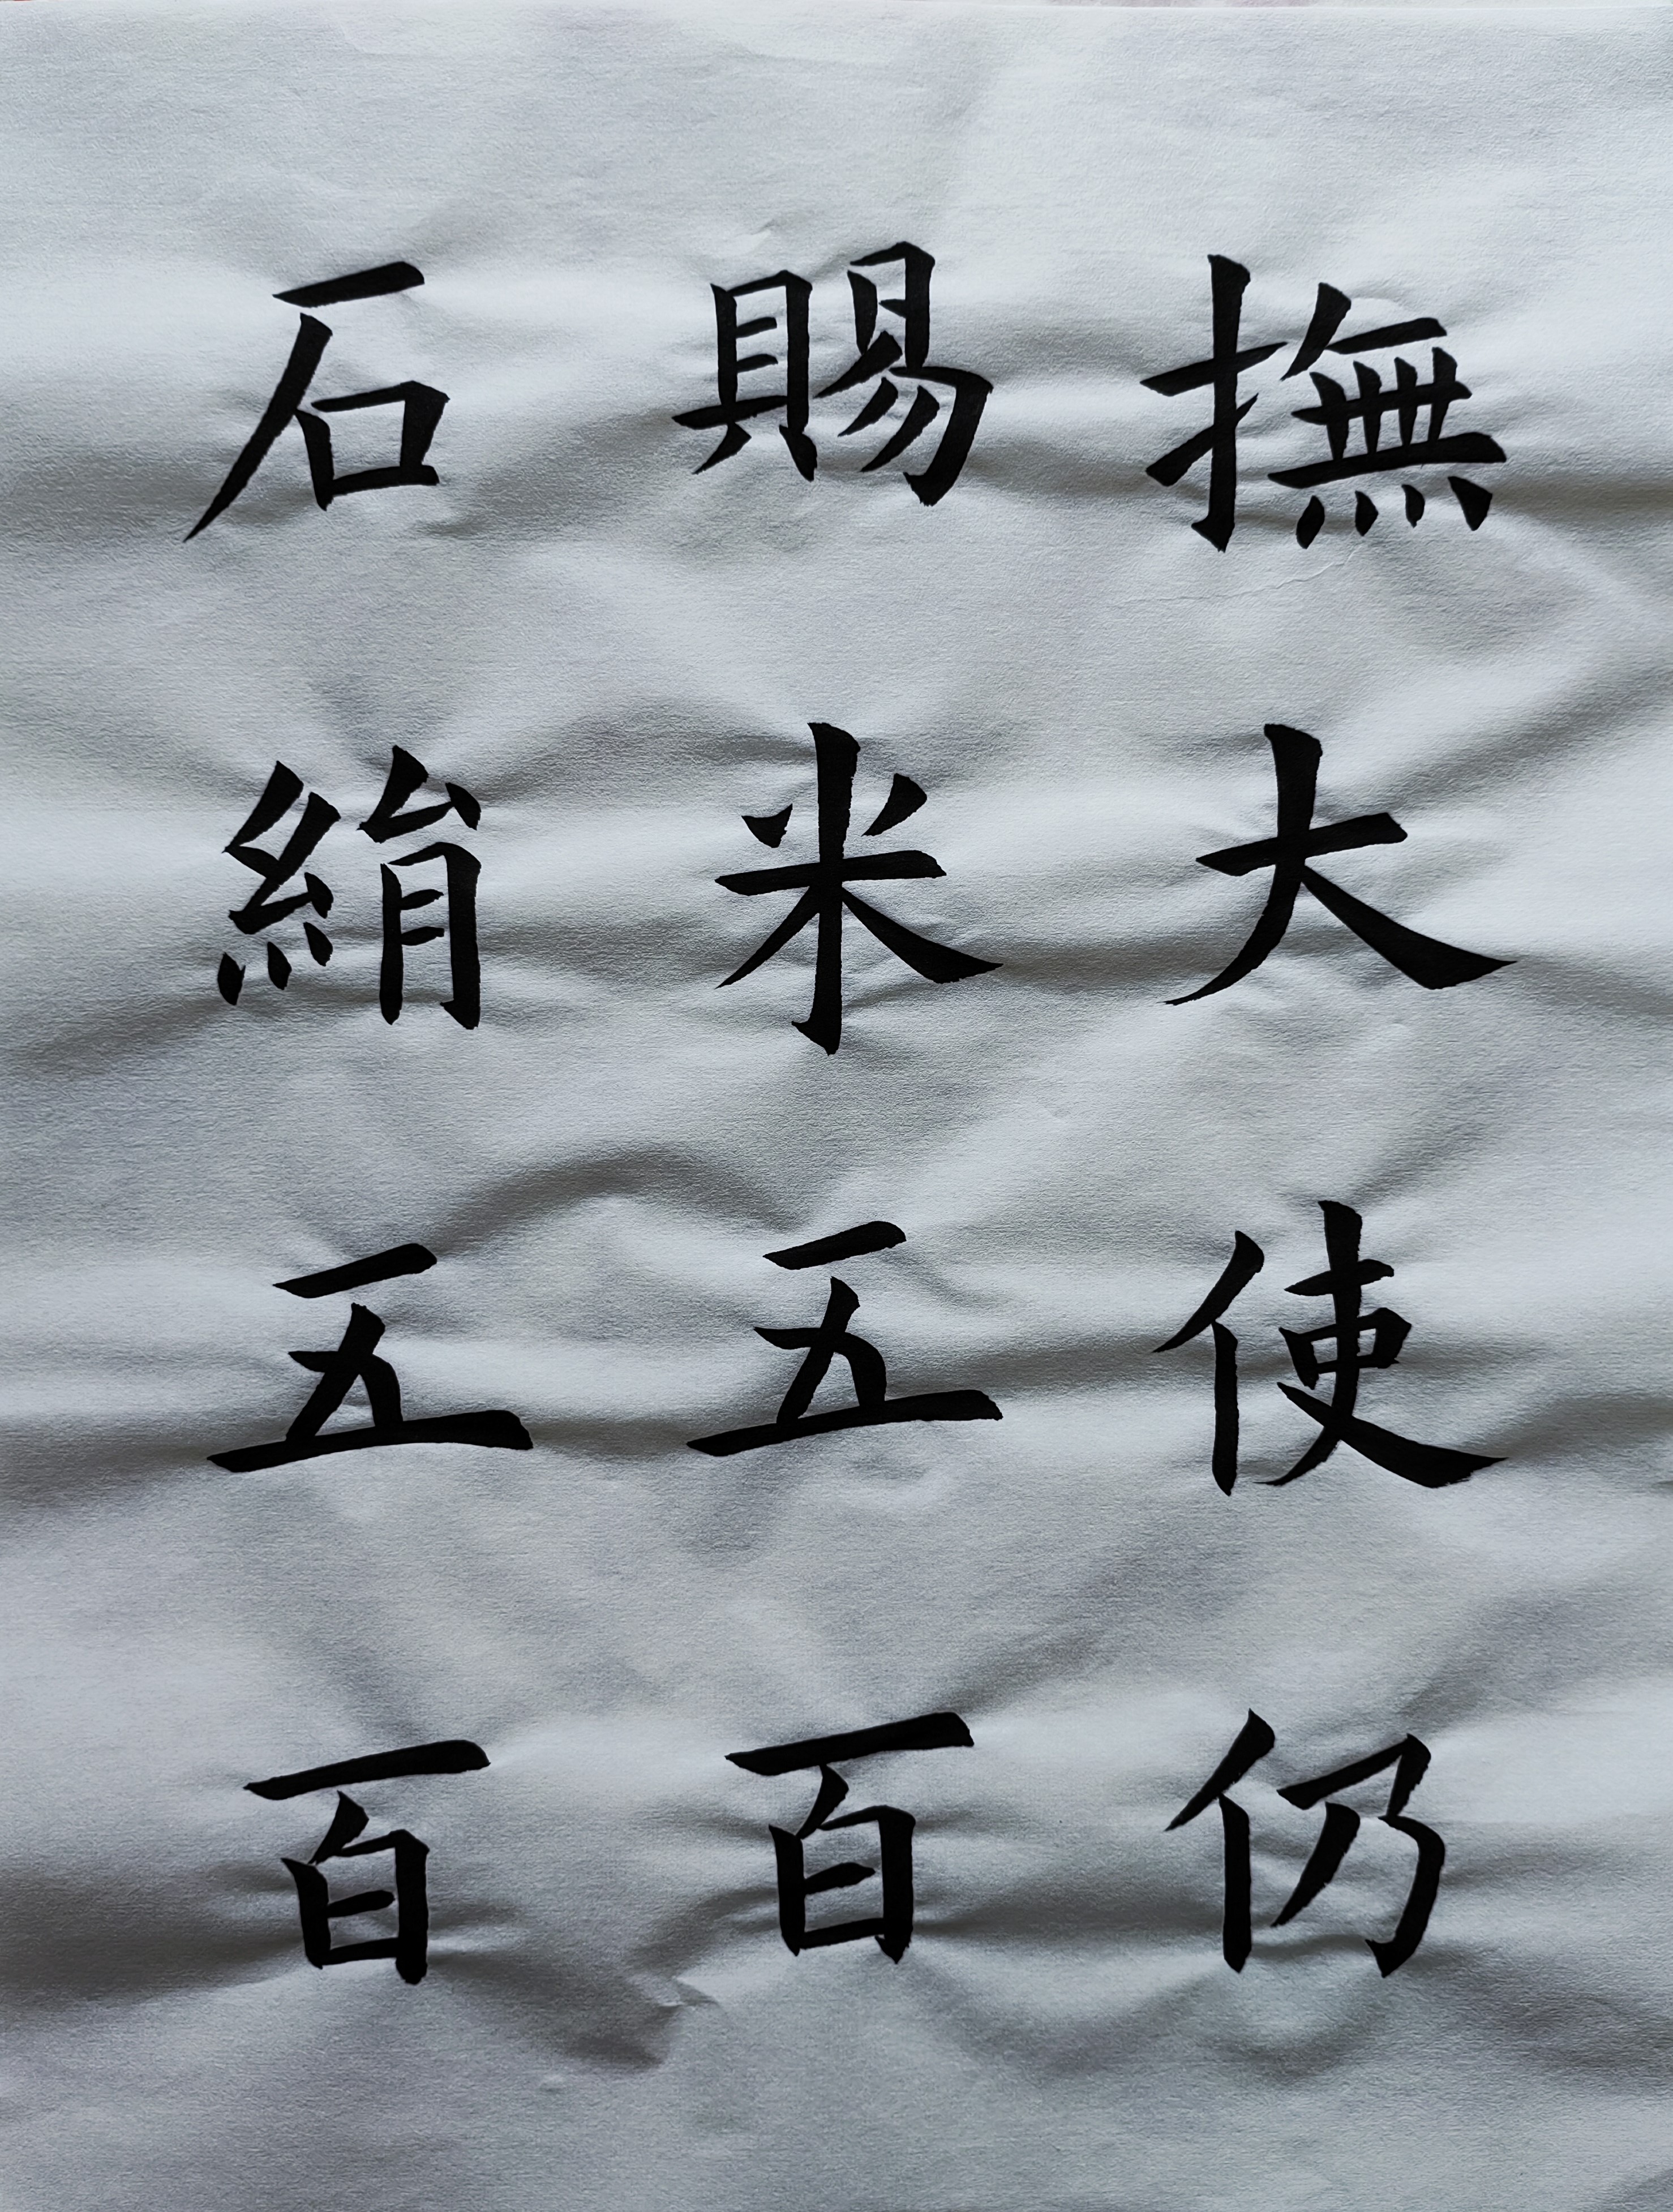 撫大使仍
賜米五百
石絹五百